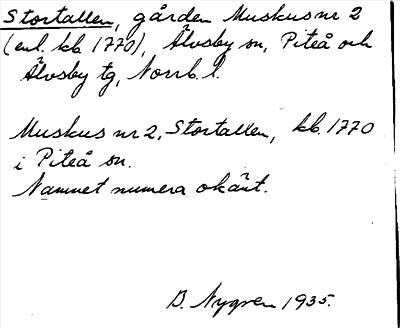 Stortallen, gården Muskus nr 2
(enl. kb. 1770), Älvsby sn, Piteå och
Älvsby tg, Norrb. l.
Muskus nr 2, Stortallen, kb. 1770
i Piteå sn.
Namnet numera okänt.
B. Nygren 1935.